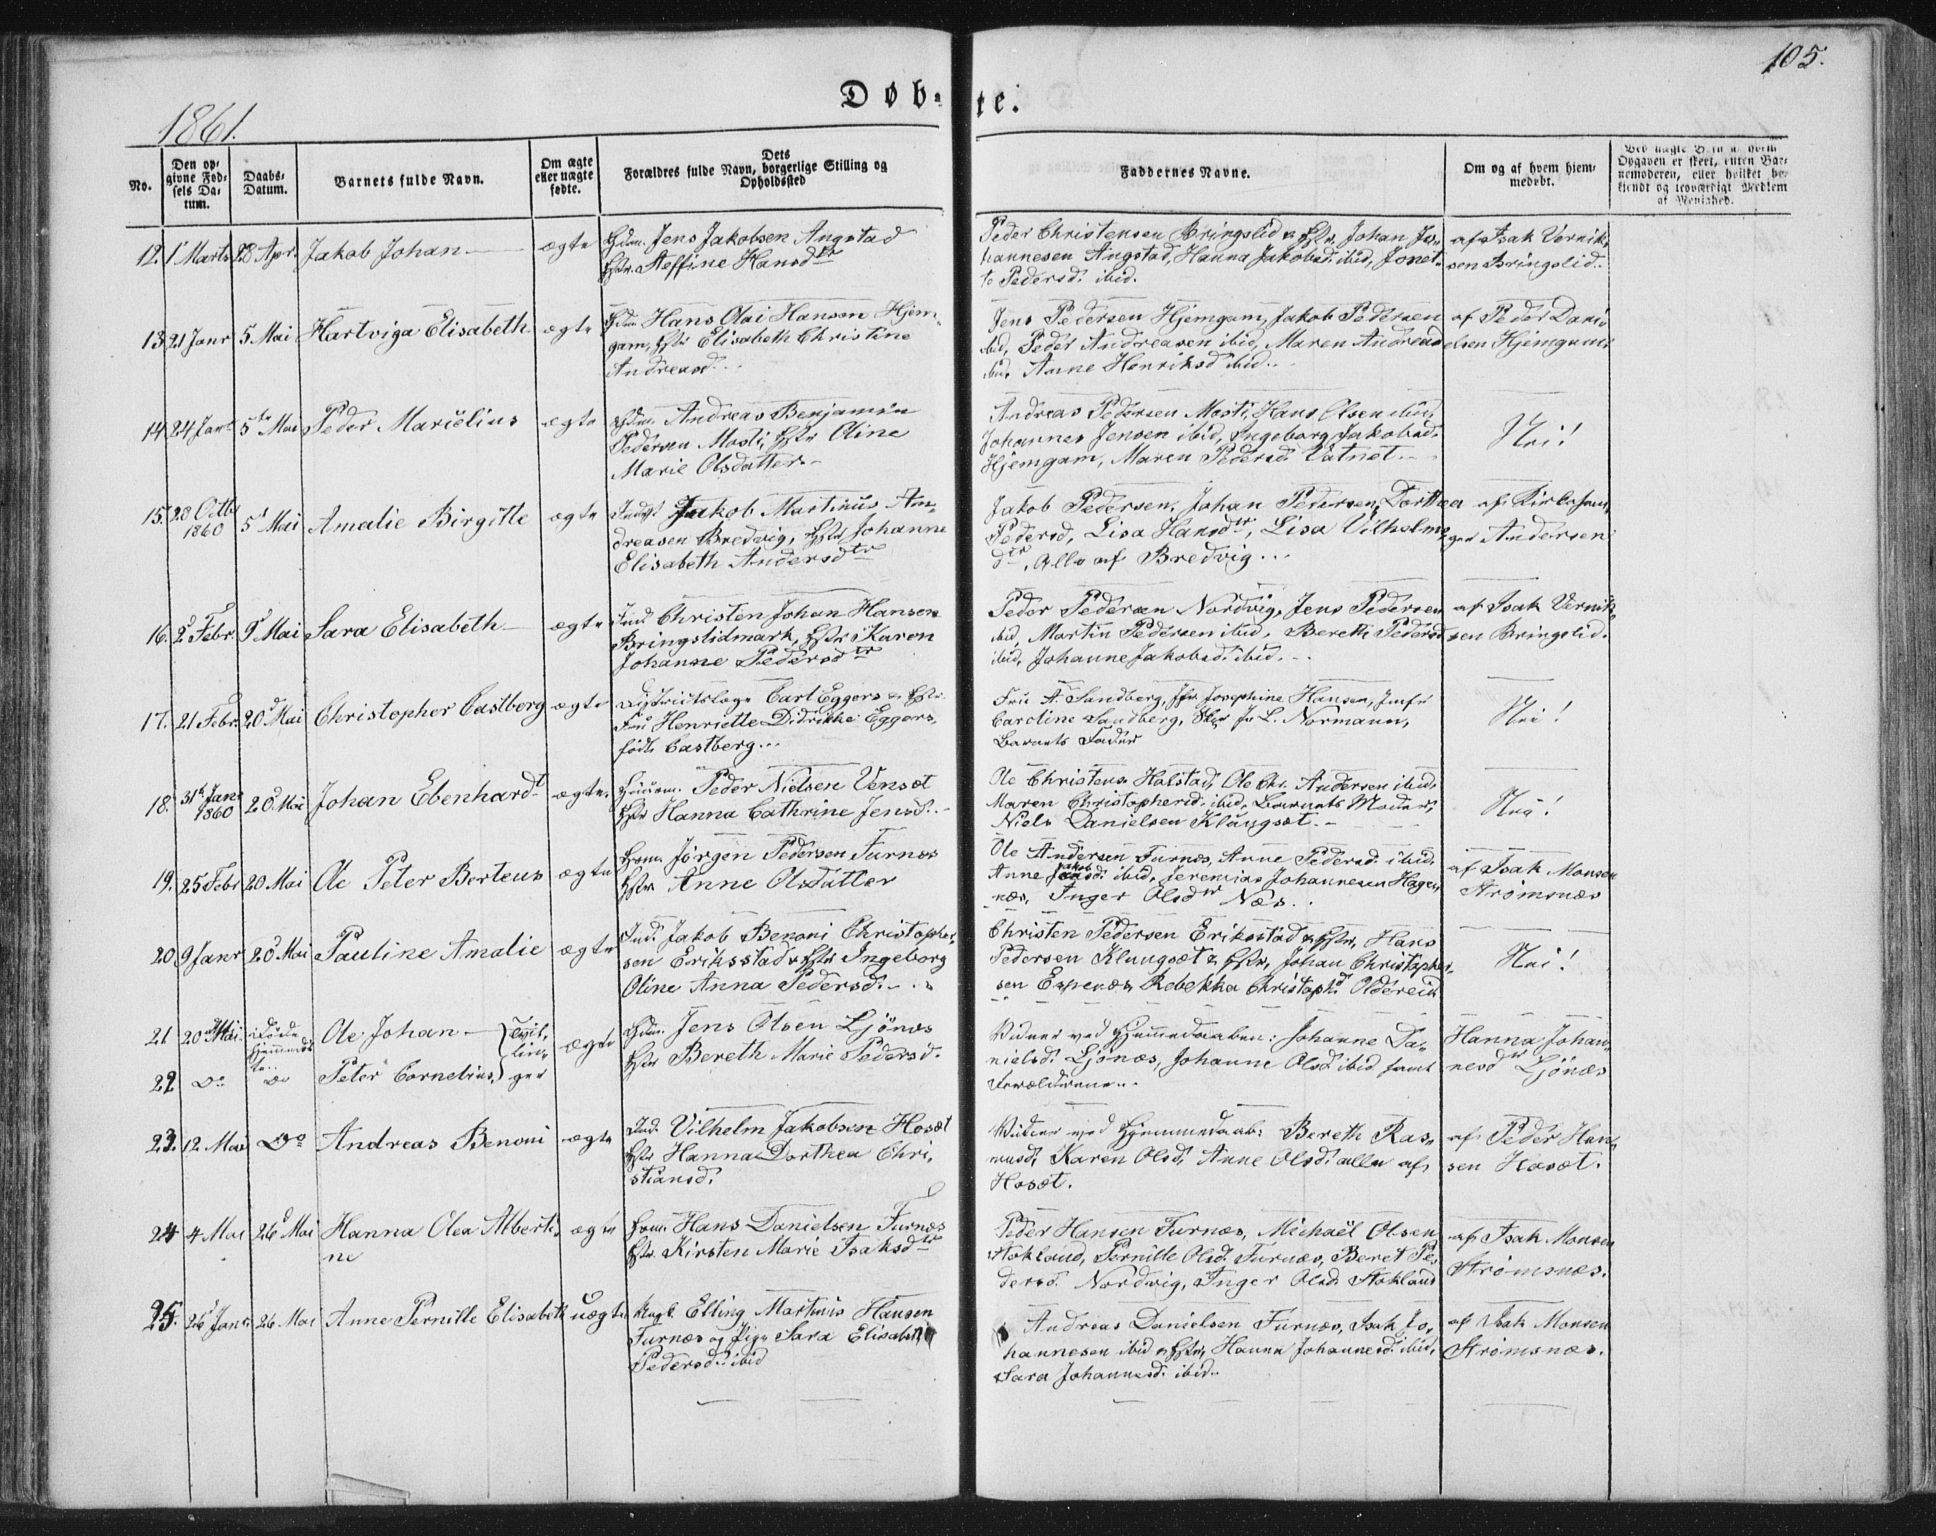 105.
Døb-te.
1861.
No.
Den op-
givne Fød-
sels Da-
tum.
Daabs-
Datum.
Barnets fulde Navn.
Om ægte
eller uægte
fødte.
Dets
Forældres fulde Navn, borgerlige Stilling og
Opholdssted
Faddernes Navne.
Om og af hvem hjem-
medøbt.
Ved uægte Børn af hvem
Opgaven er skeet, enten Bar-
nemoderen, eller hvilket be-
kjendt og troværdigt Medlem
af Menighed.
12. 1 Marts 28 Apr. Jakob Johan ægte
Gdm. Jens Jakobsen Angstad
Hstr. Steffine Hansdtr
Peder Christensen Bringslid & Hstr. Johan Jo-
hannesen Angstad, Hanna Jakobsd. ibid, Jonet-
te Pedersd. ibid.
af Isak Vernik-
sen Bringslid.
13. 21 Janr 5 Mai Hartviga Elisabeth ægte
Gdm. Hans Olai Hansen Hjem-
gam, Hstr Elisabeth Christine
Andreasd..
Jens Pedersen Hjemgam, Jakob Pedersen
ibid, Peder Andreasen ibid, Maren Andreasd
ibid. Anne Henriksd ibid..
af Peder Dani-
elsen Hjemgam.
14. 24 Janr 5te Mai Peder Marielius ægte
Gdm. Andreas Benjamin
Pedersen Mosti, Hstr Oline
Marie Olsdatter.
Andreas Pedersen Mosti, Hans Olsen ibid,
Johannes Jensen ibid, Ingeborg Jakobsd.
Hjemgam, Maren Pedersd. Vatnet.
Nei!
15. 28 Octbr
1860 5 Mai Amalie Birgitte ægte
Inds. Jakob Martinus An-
dreasen Bredvig, Hstr Johanne
Elisabeth Andersdtr
Jakob Pedersen, Johan Pedersen, Dorthea
Pedersd, Lisa Hansdtr, Lisa Vilhelms-
dtr, Alle af Bredvig...
af Kirkesan-
ger Andersen
16. 2 Febr. 9 Mai Sara Elisabeth ægte
Inds Christen Johan Hansen
Bringslidmark, Hstr Karen
Johanne Pedersdtr
Peder Pedersen Nordvig, Jens Pedersen
ibid, Martin Pedersen ibid, Bereth Pedersd
ibid, Johanne Jakobsd. ibid.
af Isak Vernik-
sen Bringslid.
17. 21 Febr. 20 Mai Christopher Castberg ægte
Districtslæge Carl Eggers & Hstr.
Fru Henriette Didrikke Eggers,
født Castberg...
Fru A. Sandberg, Jfr Josephine Hansen, Jmfr
Caroline Sandberg, Hr L. Normann,
Barnets Fader
Nei!
18. 31 Janr
1860 20 Mai Johan Ebenhardt ægte.
Peder Nielsen Venset
Hstr Hanna Cathrine Jensd..
Ole Christens Halstad, Ole Chr. Andersen ibid,
Maren Christophersd. ibid, Barnets Moder,
Niels Danielsen Klungset.
Nei!
19. 25 Febr 20 Mai Ole Peter Berteus ægte
Jørgen Pedersen Furnes
Hstr Anne Olsdatter
Ole Andersen Furnes, Anne Pedersd. ibid,
Anne Jakobsd. ibid, Jeremias Johannesen Hagen-
næs, Inger Olsdtr Næs.
af Isak Monsen
Strømsnæs
20 9 Janr 20 Mai Pauline Amalie ægte
Inds. Jakob Benoni Christopher-
sen Eriksstad & Hstr Ingeborg
Oline Anna Pedersd.
Christen Pedersen Eriksstad & Hstr, Hans
Pedersen Klungset & Hstr, Johan Christopher-
sen Espenæs, Rebekka Christophd Oldereid
Nei!
21 20 Mai Døde
hjemmedøb-
te.. Ole Johan Tvil-
lin-
ger ægte
22 Do Do Peter Cornelius,
Gdm. Jens Olsen Ljønes
Hstr Bereth Marie Pedersd.
Vidner ved Hjemmedaaben: Johanne Da-
nielsd. Ljønæs, Johanne Olsd. ibid samt
Forældrene..
Hanna Johan-
nesd Ljønæs
23. 12. Mai Do Andreas Benoni ægte
Inds. Vilhelm Jakobsen Hoset
Hstr Hanna Dorthea Chri-
stiansd.
Vidner ved Hjemmedaab: Bereth Ras-
musd. Karen Olsd. Anne Olsd. alle af
Hoset.
af Peder Han-
sen Hoset.
24 4 Mai 26 Mai Hanna Olea Alberti-
ne ægte
Hans Danielsen Furnes
Hstr. Kirsten Marie Isaksdtr
Peder Hansen Furnes, Michaël Olsen
Stokland, Pernille Olsd. Furnæs, Beret Pe-
dersd. Nordvig, Inger Olsd. Stokland
af Isak Monsen
Strømsnes.
25. 26 Janr 26 Mai Anne Pernille Elisabeth uægte
Ungk. Elling Martinus Hansen
Furnes og Pige Sara Elisabeth
Pedersd. ibid
Andreas Danielsen Furnes, Isak Jo-
hannesen ibid & Hstr, Hanna Johannesd. ibid,
Sara Johannesd. ibid..
af Isak Monsen
Strømsnæs.